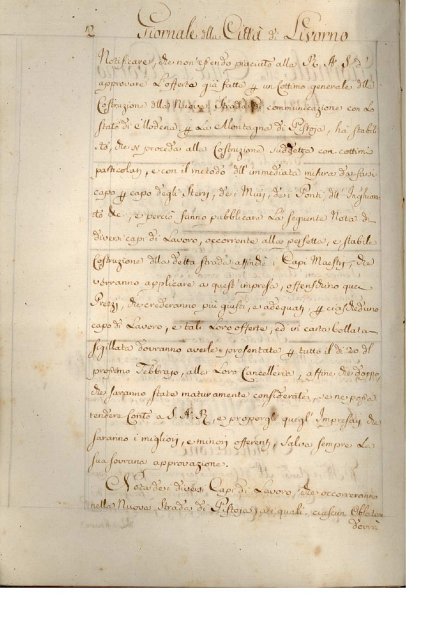 2 Giornale della Città di Livorno
Notificare, che non essendo piaciuto alla R. A. S. di
approvare l'offerta già fatta p un Cottimo generale della
Costruzione della Nuova Strada di comunicazione con Lo
Stato di Modena p La Montagna di Pistoja, ha stabili
to, che si proceda alla Costruzione suddetta con cottimi
particolari, e con il metodo dell'immediata misura da farsi
capo p capo degli Sterri, dei Muri, dei Ponti, dell'
to &c., e perciò fanno pubblicare La seguente Nota di
diversi capi di Lavoro, occorrente alla perfetta, e stabile
Costruzione della detta strada affinchè i Capi Maestri, che
vorranno applicare a quest'impresa, offeriscano quei
Prezzi, che crederanno più giusti, e adequati p ciascheduno
capo di Lavoro, e tali Loro offerte, ed in carta bollata
sigillata dovranno averle presentate p tutto il dì 20. del
prossimo Febbrajo, alle Loro Cancellerie, affine che doppo,
che saranno state maturamente considerate, se ne possa
rendere Conto a S. A. R., e proporgli quegl'Impresarj che
saranno i migliori, e minori offerenti, salva sempre La
sua sovrana approvazione.
Nota dei diversi Capi di Lavoro, che occorreranno
nella Nuova Strada di Pistoja, ai quali, ciascun Oblatore
dovrà